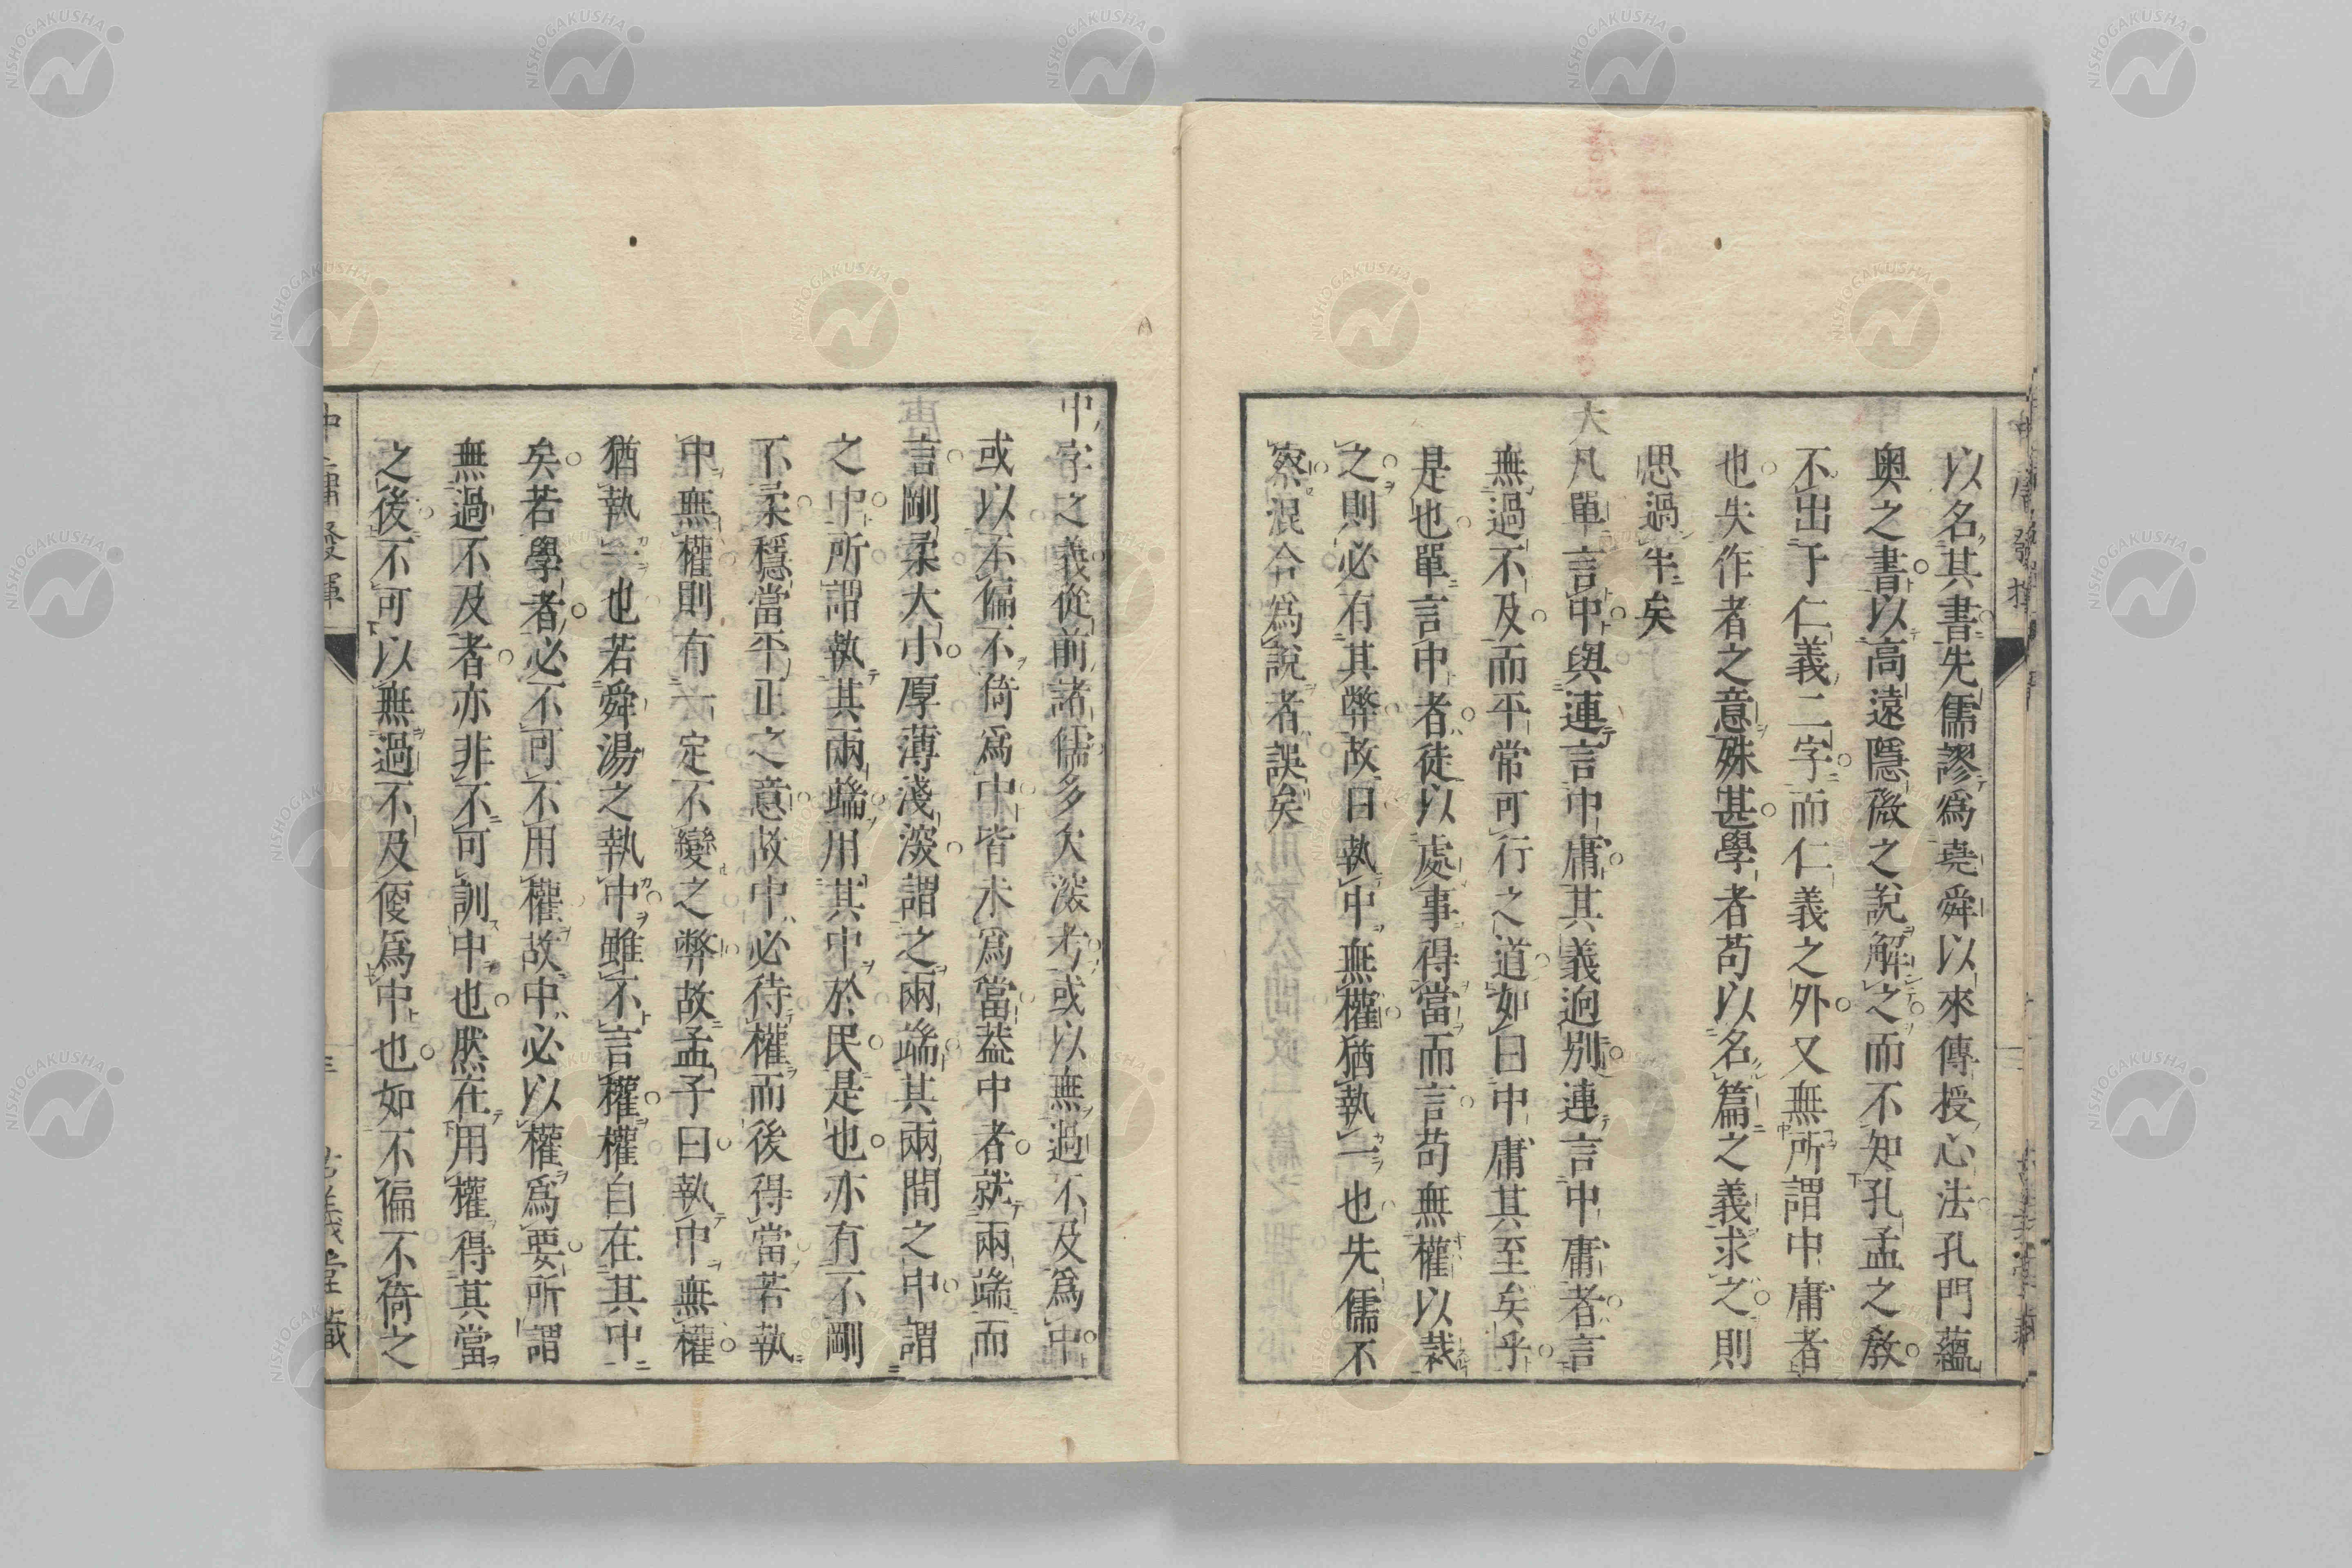 以名其書先儒謬爲堯舜以來傳授心法孔門蘊
奥之書以高遠隱微之說解之而不知孔孟之敎
不出于仁義二字而仁義之外又無所謂中庸者
也失作者之意殊甚學者苟以名篇之義求之則
思過半矣
大凡單言中與連言中庸其義逈別連言中庸者言
無過不及而平常可行之道如曰中庸其至矣乎
是也單言中者徒以處事得當而言苟無權以裁
之則必有其弊故曰執中無權猶執一也先儒不
察混合爲說者誤矣
中字之義從前諸儒多欠深考或以無過不及爲中
或以不偏不倚爲中皆未爲當蓋中者就兩端而
言剛柔大小厚薄淺深謂之兩端其兩間之中謂
之中所謂執其兩端用其中於民是也亦有不剛
不柔穩當平正之意故中必待權而後得當若執
中無權則有一定不變之弊故孟子曰執中無權
猶執一也若舜湯之執中雖不言權權自在其中
矣若學者必不可不用權故中必以權爲要所謂
無過不及者亦非不可訓中也然在用權得其當
之後不可以無過不及便爲中也如不偏不倚之
中庸發揮
古義堂藏
NISHOGAKUSHA